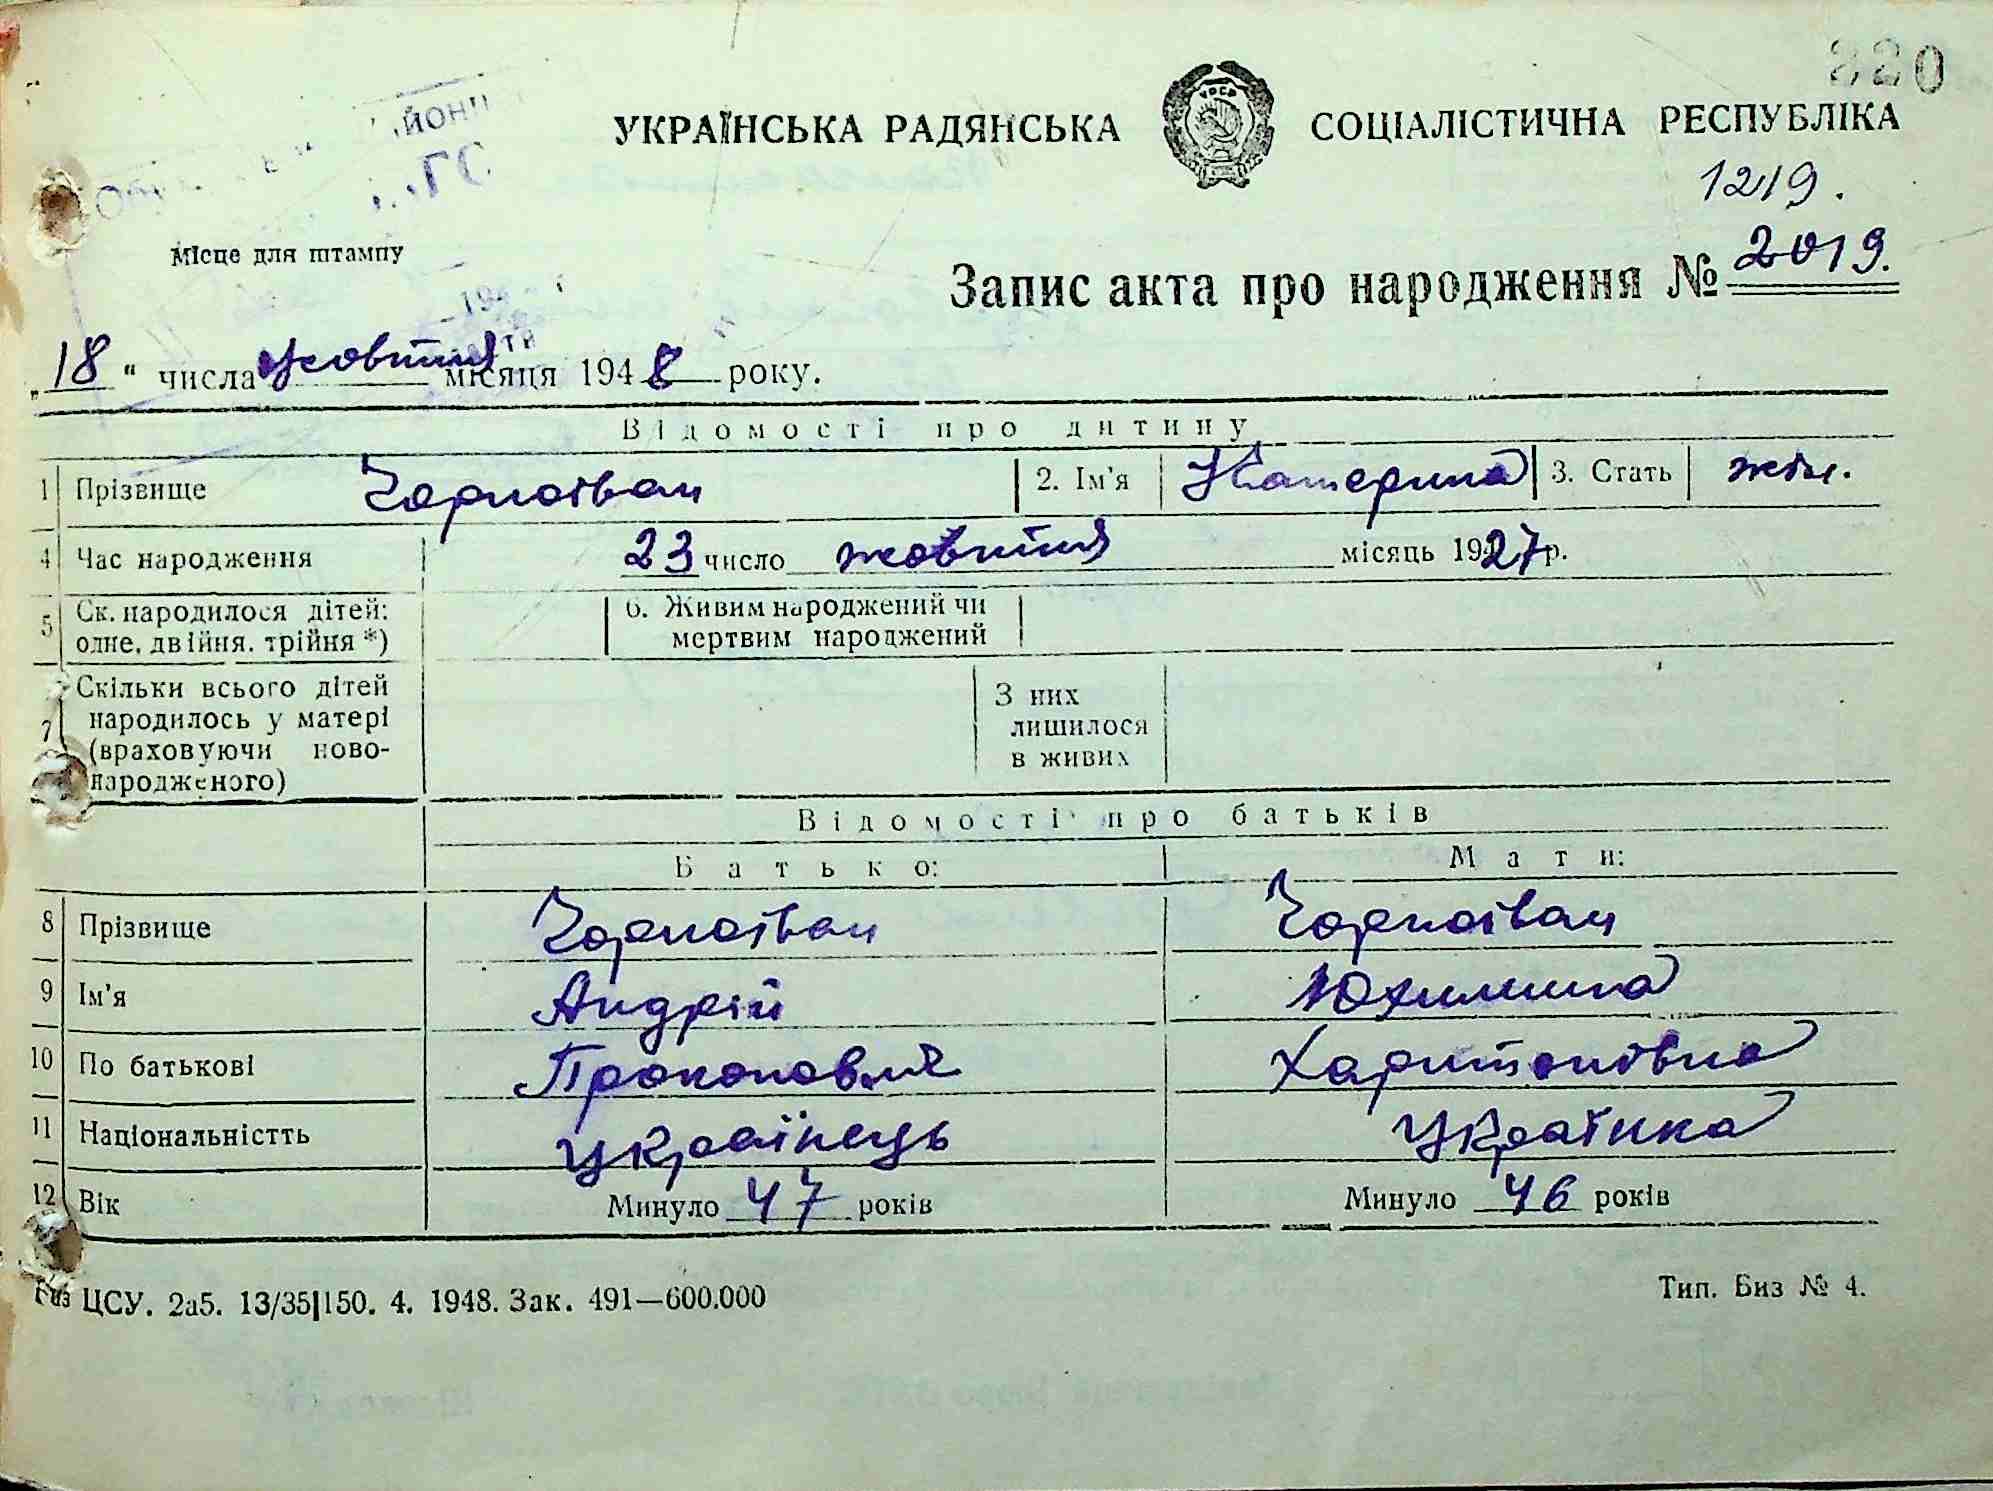 220
УКРАЇНСЬКА РАДЯНСЬКА СОЦІАЛІСТИЧНА РЕСПУБЛІКА
УРСР
ЙОН
ГС
1219.
Місце для штампу
Запис акта про народження № 2019.
194
„18“ числа жовтня місяця 1948 року.
Відомості про дитину
1 Прізвище Чорноіван 2. Ім'я Катерина 3. Стать жін.
4 Час народження 23 число жовтня місяць 1927 р.
5 Ск. народилося дітей: 6. Живим народжений чи
одне, двійня, трійня *) мертвим народжений
7 Скільки всього дітей З них
народилось у матері лишилося
(враховуючи ново- в живих
народженого)
Відомості про батьків
Батько: Мати:
8 Прізвище Чорноіван Чорноіван
9 Ім'я Андрій Юхимина
10 По батькові Прокопович Харитонівна
11 Національністть Українець Українка
12 Вік Минуло 47 років Минуло 46 років
ЦСУ. 2а5. 13/35|150. 4. 1948. Зак. 491—600.000 Тип. Биз № 4.